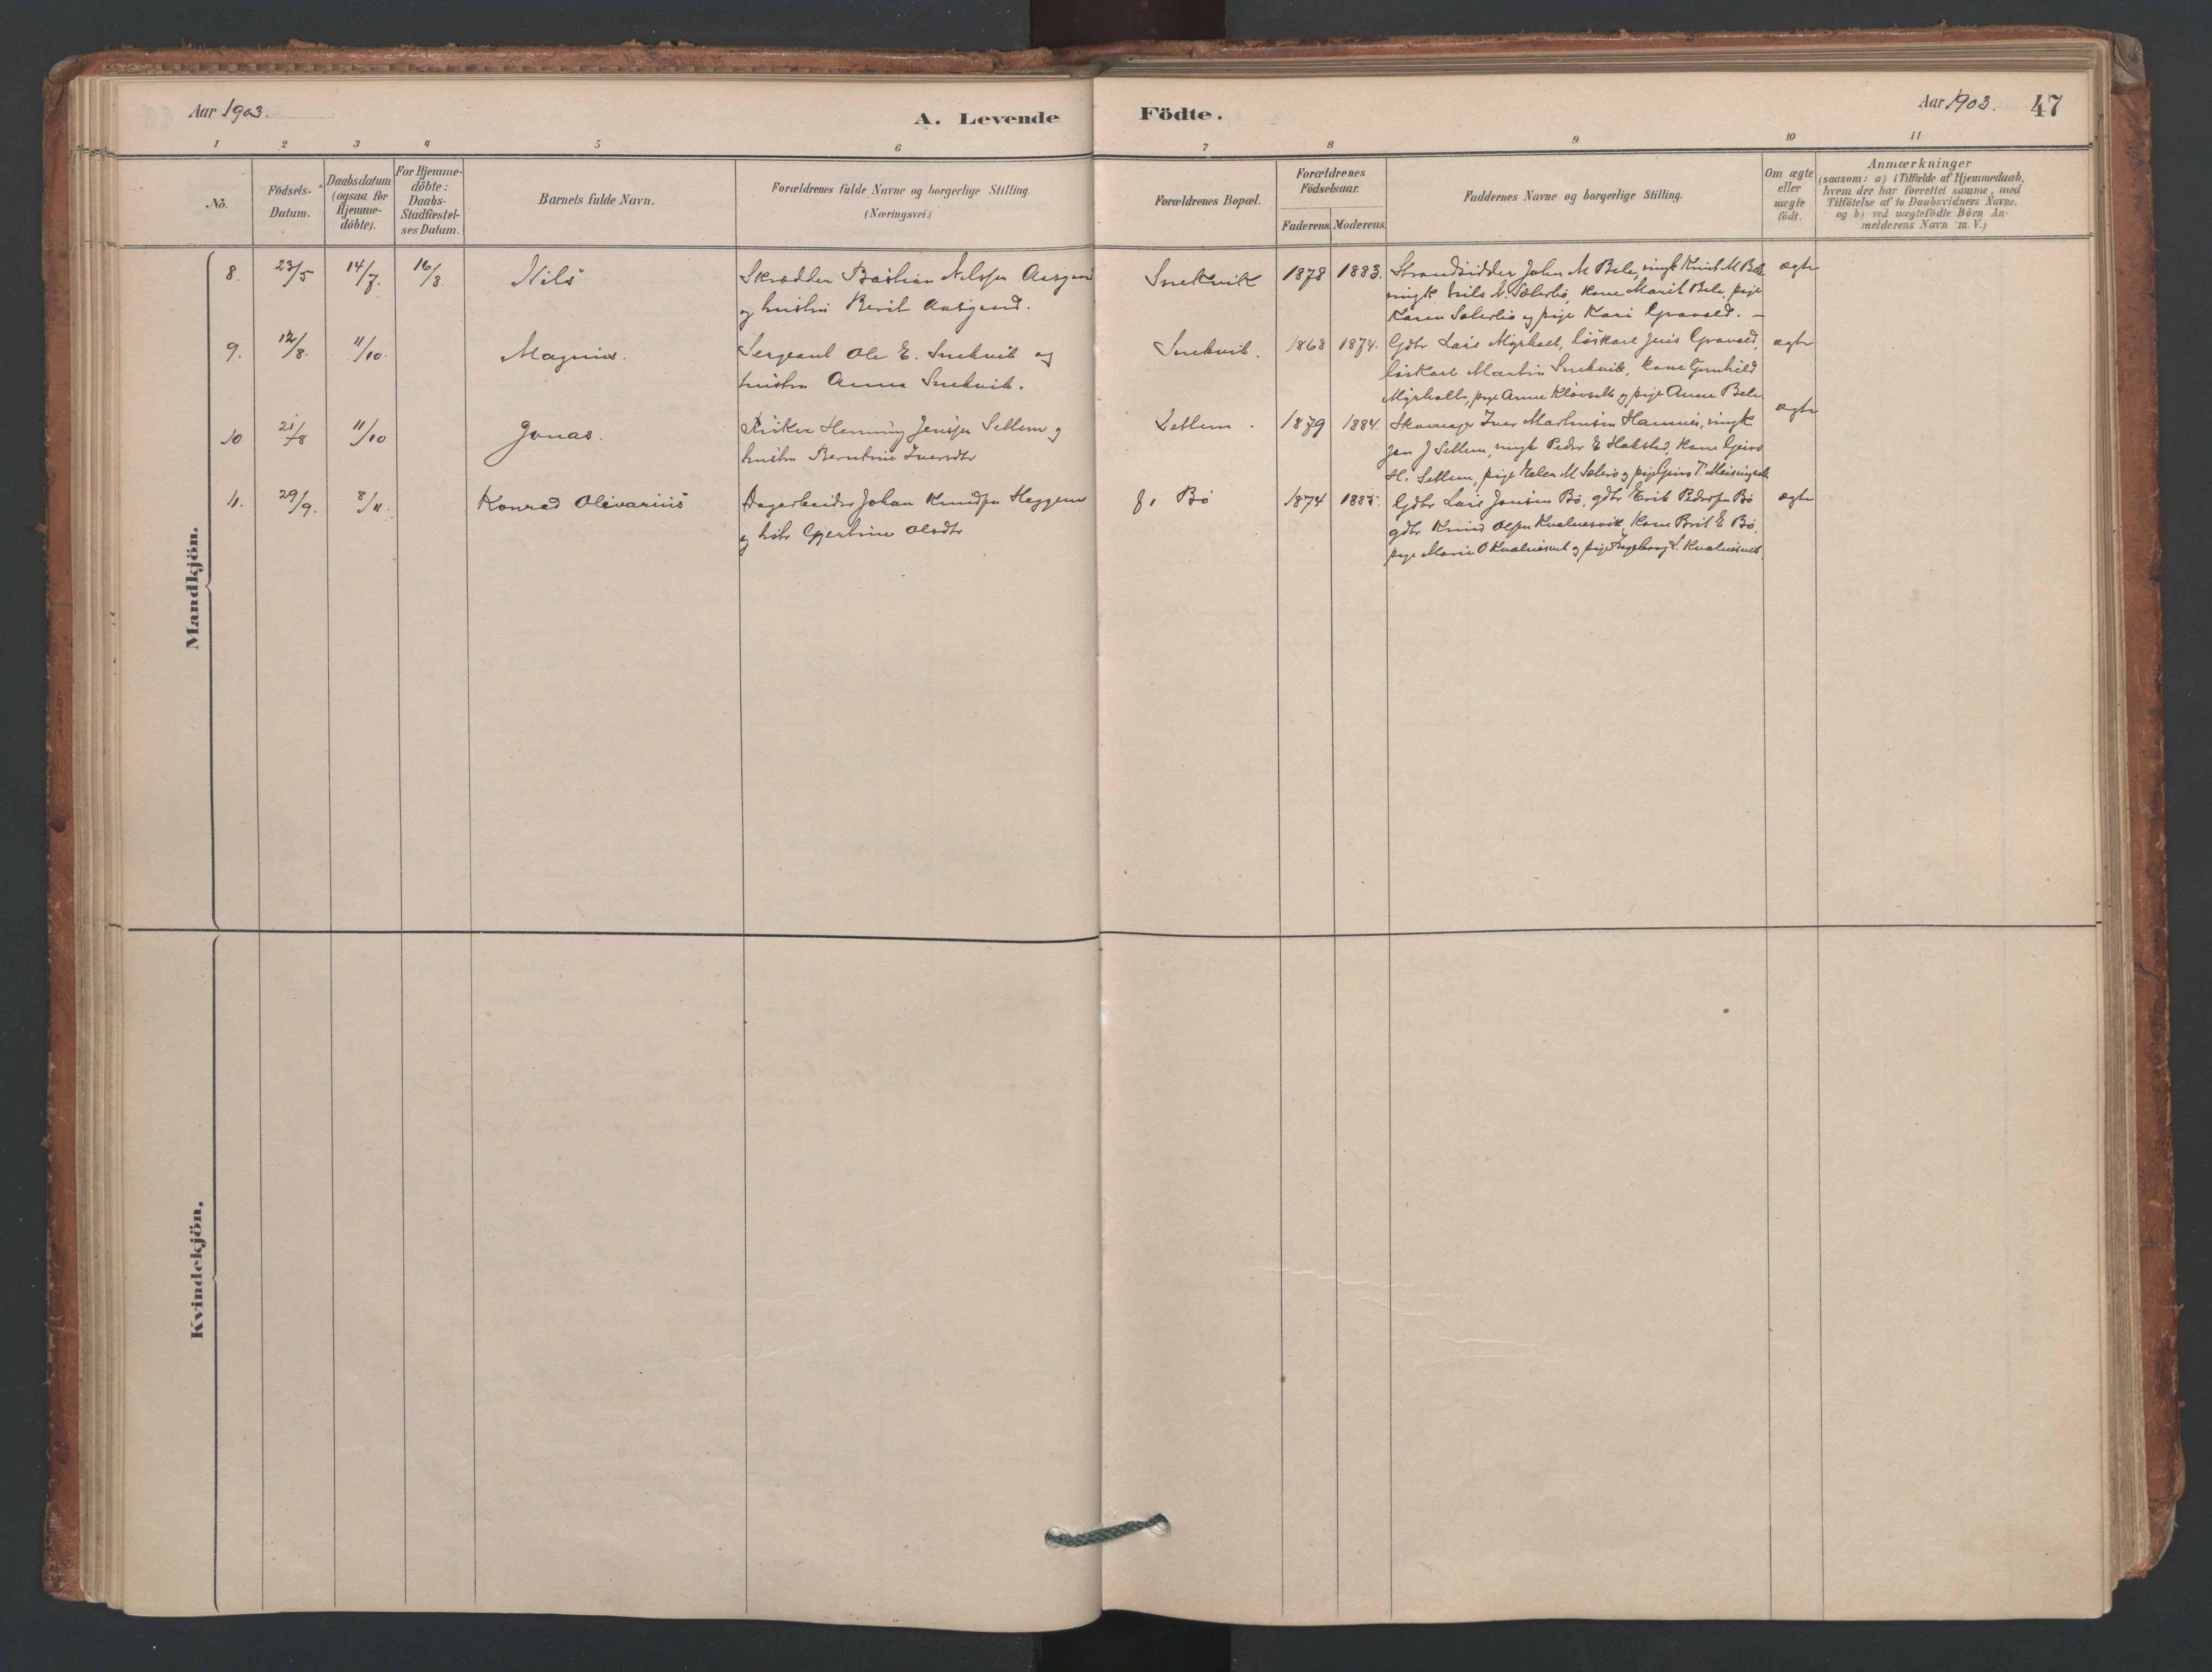 Aar 1903.
A. Levende Födte.
Aar 1903. 47
1 2 3 4 5 6 7 8 9 10 11
No.
Födsels-Datum.
Daabsdatum (ogsaa for Hjemme-döbte).
For Hjemme-döbte: Daabs-Stadfæstel-ses Datum.
Barnets fulde Navn.
Forældrenes fulde Navne og borgerlige Stilling.
(Næringsvei.)
Forældrenes Bopæl.
Forældrenes Födselsaar.
Faderens. Moderens.
Faddernes Navne og borgerlige Stilling.
Om ægte eller uægte födt.
Anmærkninger
(saasom: a) i Tilfælde af Hjemmedaab,
hvem der har forrettet samme, med
Tilföielse af to Daabsvidners Navne.
og b) ved uægtefödte Börn An-
melderens Navn m. V.)
Mandkjön.
8. 23/5 14/7. 16/8 Nils Skrædder Bastian Nilssen Aasgaard Snekvik 1878 1883. Strandsidder John M Bele, ungk Knut M Bele ægte
og hustru Berit Aasgaard. ungk Nils N. Sæterbø, kone Marit Bele, pige
Karen Sæterbø og pige Kari Gravald. —
9. 12/8. 11/10. Magnus. Sergeant Ole E. Snekvik og Snekvik. 1868 1874. Gdbr Lars Myrholt, løskarl Jens Gravald, ægte
hustru Anna Snekvik. løskarl Martin Snekvik, kone Gunhild
Myrholt, pige Anne Kløvset og pige Anne Bele
10 21/8 11/10 Jonas. Fisker Henning Jenssen Settem og Settem. 1879 1884. Skomager Iver Martinsen Hamnes, ungk ægte
hustru Berntine Iversdtr Jon J Settem, ungk Peder E Halsted, kone Gjerø
H. Settem, pige Helen M Sæterø og pige T. Meisingset
11. 29/9. 8/11. Konrad Olivarius Dagarbeider Johan Knudsen Heggem f. Bø 1874 1885. Gdbr Lars Jonsen Bø, gdbr Erik Pedersen Bø ægte
og hstr Gjertine Olsdtr gdbr Knud Olsen Kvalnesvik, Kone Brit E Bø,
pige Marie O Kvalnesvik og pige Ingeborg L. Kvalnesvik.
Kvindekjön.